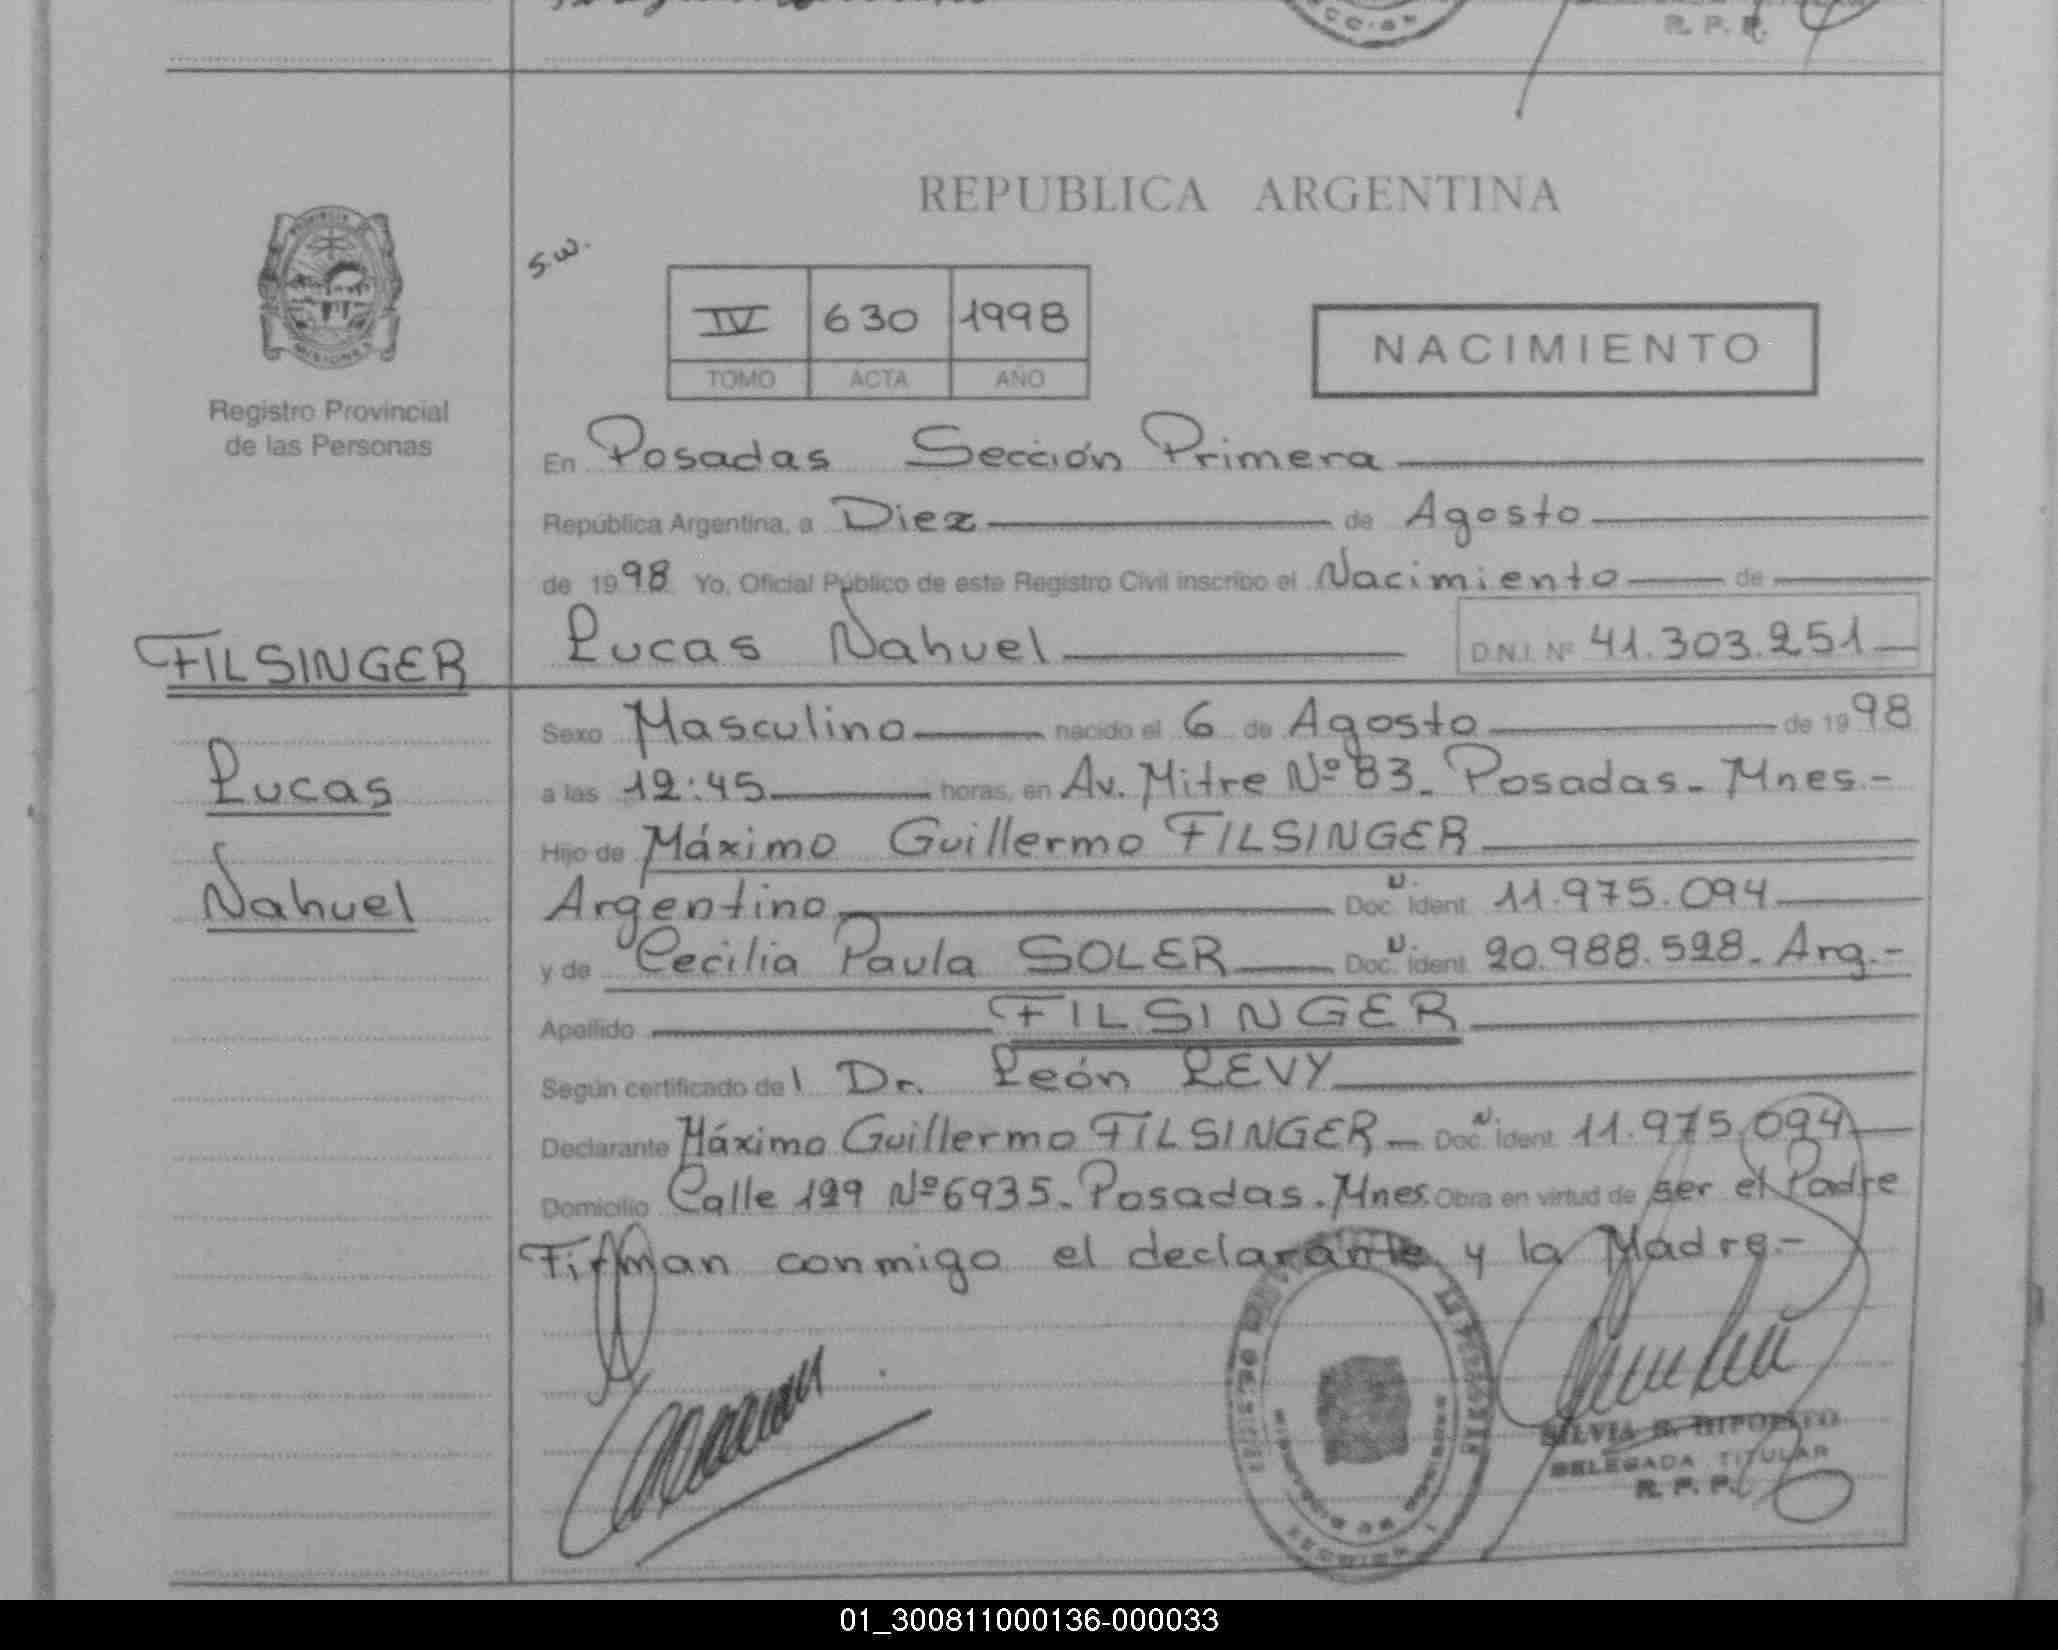 R. P. P.
REPUBLICA ARGENTINA
S.W.
IV 630 1998
TOMO ACTA AÑO
NACIMIENTO
MISIONES
Registro Provincial
de las Personas
En Posadas Sección Primera
República Argentina, a Diez de Agosto
de 1998 Yo, Oficial Público de este Registro Civil inscribo el Nacimiento de
FILSINGER
Lucas Nahuel D.N.I. Nº 41.303.251
Sexo Masculino nacido el 6 de Agosto de 1998
Lucas
a las 12:45 horas, en Av. Mitre Nº 83. Posadas. Mnes.-
Hijo de Máximo Guillermo FILSINGER
Nahuel
Argentino Doc. N. Ident. 11.975.094
y de Cecilia Paula SOLER Doc. N. Ident. 20.988.528. Arg.-
Apellido FILSINGER
Según certificado del Dr. León LEVY
Declarante Máximo Guillermo FILSINGER Doc. N. Ident. 11.975.094
Domicilio Calle 129 Nº 6935. Posadas. Mnes. Obra en virtud de ser el Padre
Firman conmigo el declarante y la Madre.-
SILVIA HIPOLITO
DELEGADA TITULAR
R. P. P.
01_300811000136-000033